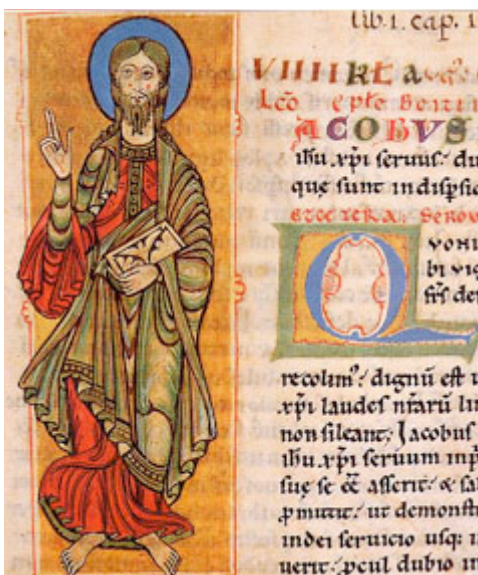 lib. i. cap. i
VIIII kł a
Lcō eplē
IACOBVS
ihu xpi seruus: du
quę sunt in dispsio
SERMO
Q VONI
bi vig
frs de
recolim⁹: dignū est u
xpi laudes nr̄arū lin
non sileant; Jacobus
ihu xpi seruum inp
suę se eē asserit: & sa
ꝓmittit: ut demonst
indei seruicio usq: i
uerit: ꝓcul dubio in